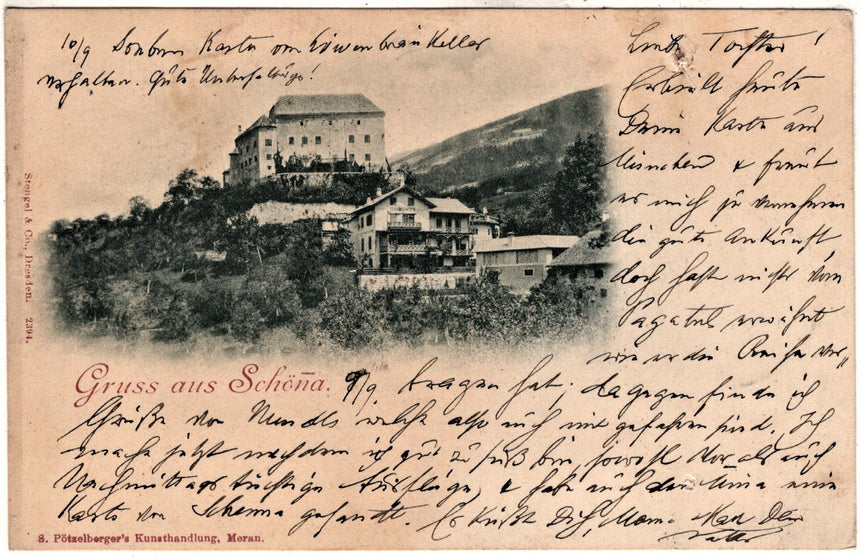 10/9 Soeben Karte von Löwenbräukeller
erhalten. Gute Unterhaltung!
Liebe Tochter!
Erhielt heute
Deine Karte aus
München & freut
es mich zu vernehmen
die gute Ankunft
doch hast nicht vom
erwähnt
wie er die Reise ver„
Stengel & Co., Dresden. 2394.
Gruss aus Schöna.
9/9 tragen hat; dagegen finde ich
Grüße von welche also auch mit gefahren sind. Ich
mache jetzt nachdem ich gut zu Fuß bin, sowohl Vor als auch
Nachmittags tüchtige Ausflüge, & habe auch der Mina eine
Karte von Schenna gesandt. Es küßt Dich, Dein
Vater
S. Pötzelberger's Kunsthandlung, Meran.